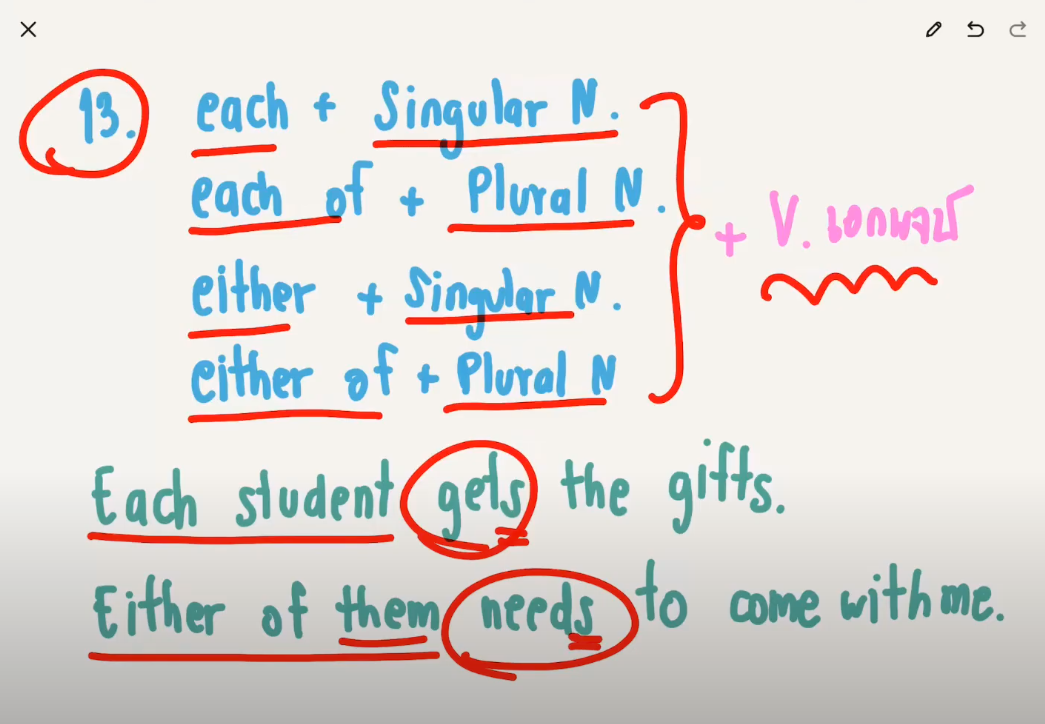 13. each + Singular N.
each of + Plural N.
+ V. เอกพจน์
either + Singular N.
either of + Plural N
Each student gets the gifts.
Either of them needs to come with me.